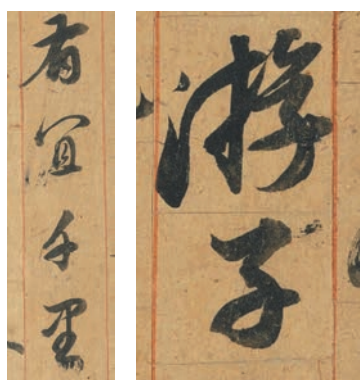 游子
有宜千里